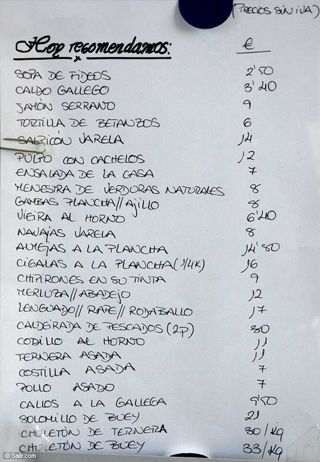 (PRECIOS SIN IVA)
Hoy recomendamos: €
SOPA DE FIDEOS 2'50
CALDO GALLEGO 3'40
JAMÓN SERRANO 9
TORTILLA DE BETANZOS 6
SALPICÓN VARELA 14
PULPO CON CACHELOS 12
ENSALADA DE LA CASA 7
MENESTRA DE VERDURAS NATURALES 8
GAMBAS PLANCHA//AJILLO 8
VIEIRA AL HORNO 6'40
NAVAJAS VARELA 8
ALMEJAS A LA PLANCHA 14'80
CIGALAS A LA PLANCHA (1/4K) 16
CHIPIRONES EN SU TINTA 9
MERLUZA//ABADEJO 12
LENGUADO//RAPE//RODABALLO 17
CALDEIRADA DE PESCADOS (2P) 30
CODILLO AL HORNO 11
TERNERA ASADA 11
COSTILLA ASADA 7
POLLO ASADO 7
CALLOS A LA GALLEGA
SOLOMILLO DE BUEY 21
CHULETÓN DE TERNERA 30/KG
CHULETÓN DE BUEY 33/KG
© Salir.com